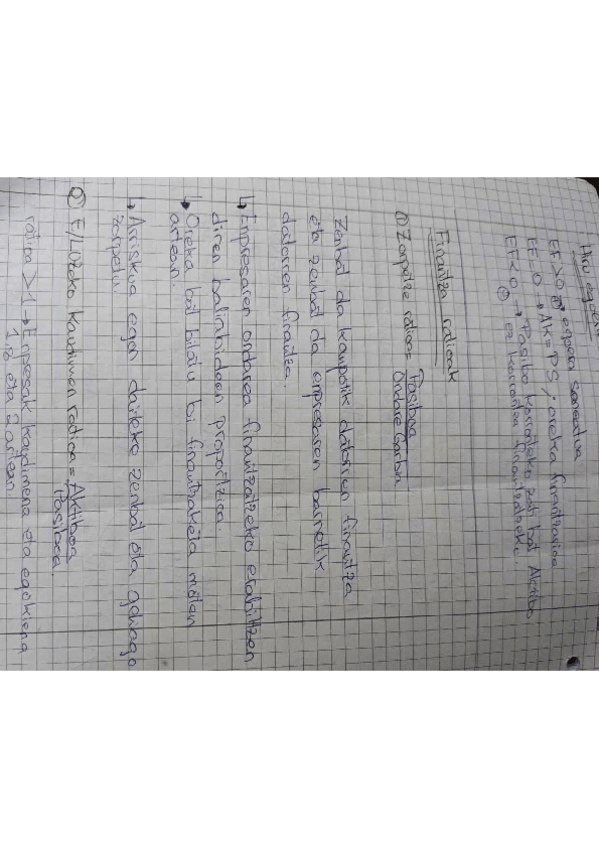 Hiru egoera
EF>0 egoera sanoatua
EF=0 → AK=PS, oreka finantzarioa
EF<0 → Pasibo korronteko zati bat Aktibo
ez korrontea finantzatzeko.
Finantza ratioak
① Zorpetze ratioa = Pasiboa
Ondare Garbia
Zenbat da kanpotik datorren finantza
eta zenbat da enpresaren barrutik
datorren finantza.
↳ Enpresaren ondarea finantzatzeko erabiltzen
diren baliabideen proportzioa.
↳ Oreka bat bilatu bi finantzaketa moten
artean.
↳ Arriskua egon daiteke zenbat eta gehiago
zorpetu
② E/Luzeko kaudimen ratioa = Aktiboa
Pasiboa.
ratioa > 1 → Enpresak kaudimena eta egokiena
1,8 eta 2 artean